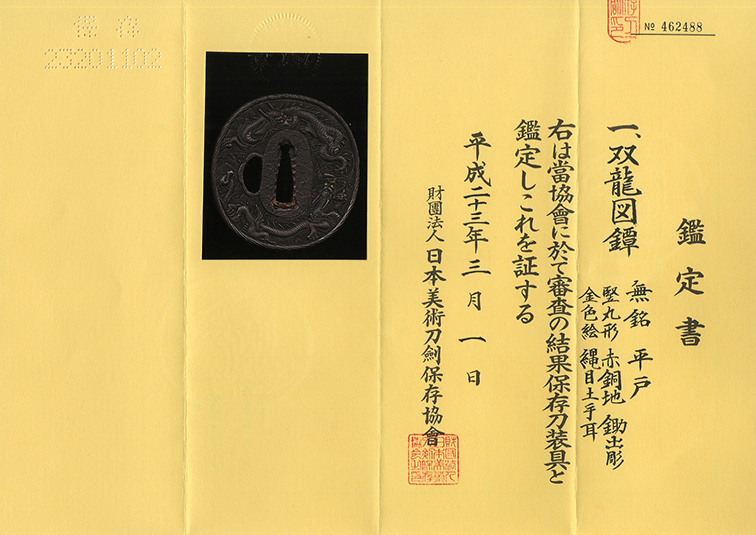 № 462488
鑑定書
一、双龍図鐔
無銘 平戸
竪丸形 赤銅地 鋤出彫
金色絵 縄目土手耳
右は當協會に於て審査の結果保存刀装具と
鑑定しこれを証する
平成二十三年三月一日
財團法人日本美術刀劍保存協會
保存
23201102